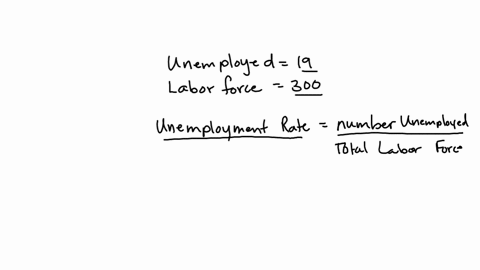 Unemployed = 19
Labor force = 300
Unemployment Rate = number Unemployed
Total Labor Force